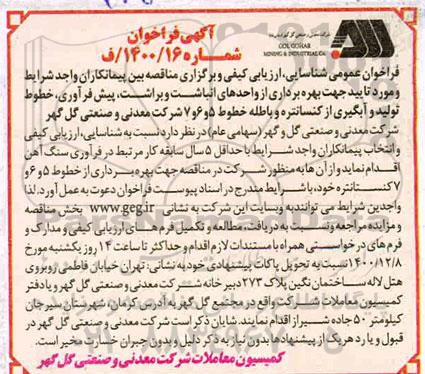 آگهی فراخوان
شماره ۱۴۰۰/۱۶/ف
GOL GOHAR
MINING & INDUSTRIAL CO.
فراخوان عمومی شناسایی، ارزیابی کیفی و برگزاری مناقصه بین پیمانکاران واجد شرایط
و مورد تایید جهت بهره برداری از واحدهای انباشت و برداشت، پیش فرآوری، خطوط
تولید و آبگیری از کنسانتره و باطله خطوط ۵ و ۶ و ۷ شرکت معدنی و صنعتی گل گهر
شرکت معدنی و صنعتی گل و گهر (سهامی عام) در نظر دارد نسبت به شناسایی، ارزیابی کیفی
و انتخاب پیمانکاران واجد شرایط با حداقل ۵ سال سابقه کار مرتبط در فرآوری سنگ آهن
اقدام نماید و از آن ها به منظور شرکت در مناقصه جهت بهره برداری از خطوط ۵ و ۶ و
۷ کنسانتره خود، با شرایط مندرج در اسناد پیوست فراخوان دعوت به عمل آورد. لذا
واجدین شرایط می توانند به وبسایت این شرکت به نشانی www.geg.ir بخش مناقصه
و مزایده مراجعه و نسبت به دریافت، مطالعه و تکمیل فرم های ارزیابی کیفی و مدارک و
فرم های درخواستی همراه با مستندات لازم اقدام و حداکثر تا ساعت ۱۴ روز یکشنبه مورخ
۱۴۰۰/۱۲/۸ نسبت به تحویل پاکات پیشنهادی خود به نشانی: تهران خیابان فاطمی روبروی
هتل لاله ساختمان نگین پلاک ۲۷۳ دبیرخانه شرکت معدنی و صنعتی گل گهر و یا دفتر
کمیسیون معاملات شرکت واقع در مجتمع گل گهر به آدرس کرمان، شهرستان سیرجان
کیلومتر ۵۰ جاده شیراز اقدام نمایند. شایان ذکر است شرکت معدنی و صنعتی گل گهر در
قبول و یا رد هر یک از پیشنهادها بدون نیاز به ذکر دلیل و بدون جبران خسارت مخیر است.
کمیسیون معاملات شرکت معدنی و صنعتی گل گهر